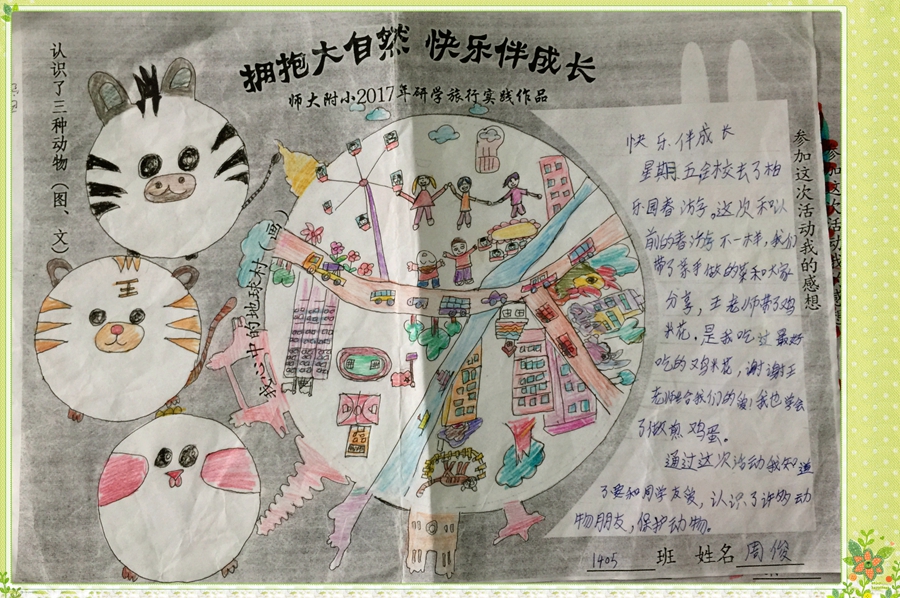 拥抱大自然 快乐伴成长
师大附小2017年研学旅行实践作品
认识了三种动物（图、文）
王
我心中的地球村（画）
参加这次活动我的感想
快乐伴成长
星期五全校去了柏
乐园春游。这次和以
前的春游不一样，我们
带了亲手做的菜和大家
分享，王老师带了鸡
米花，是我吃过最好
吃的鸡米花，谢谢王
老师给我们的爱！我也学会
了做煎鸡蛋。
通过这次活动我知道
了要和同学友爱，认识了许多动
物朋友，保护动物。
1405 班 姓名 周俊